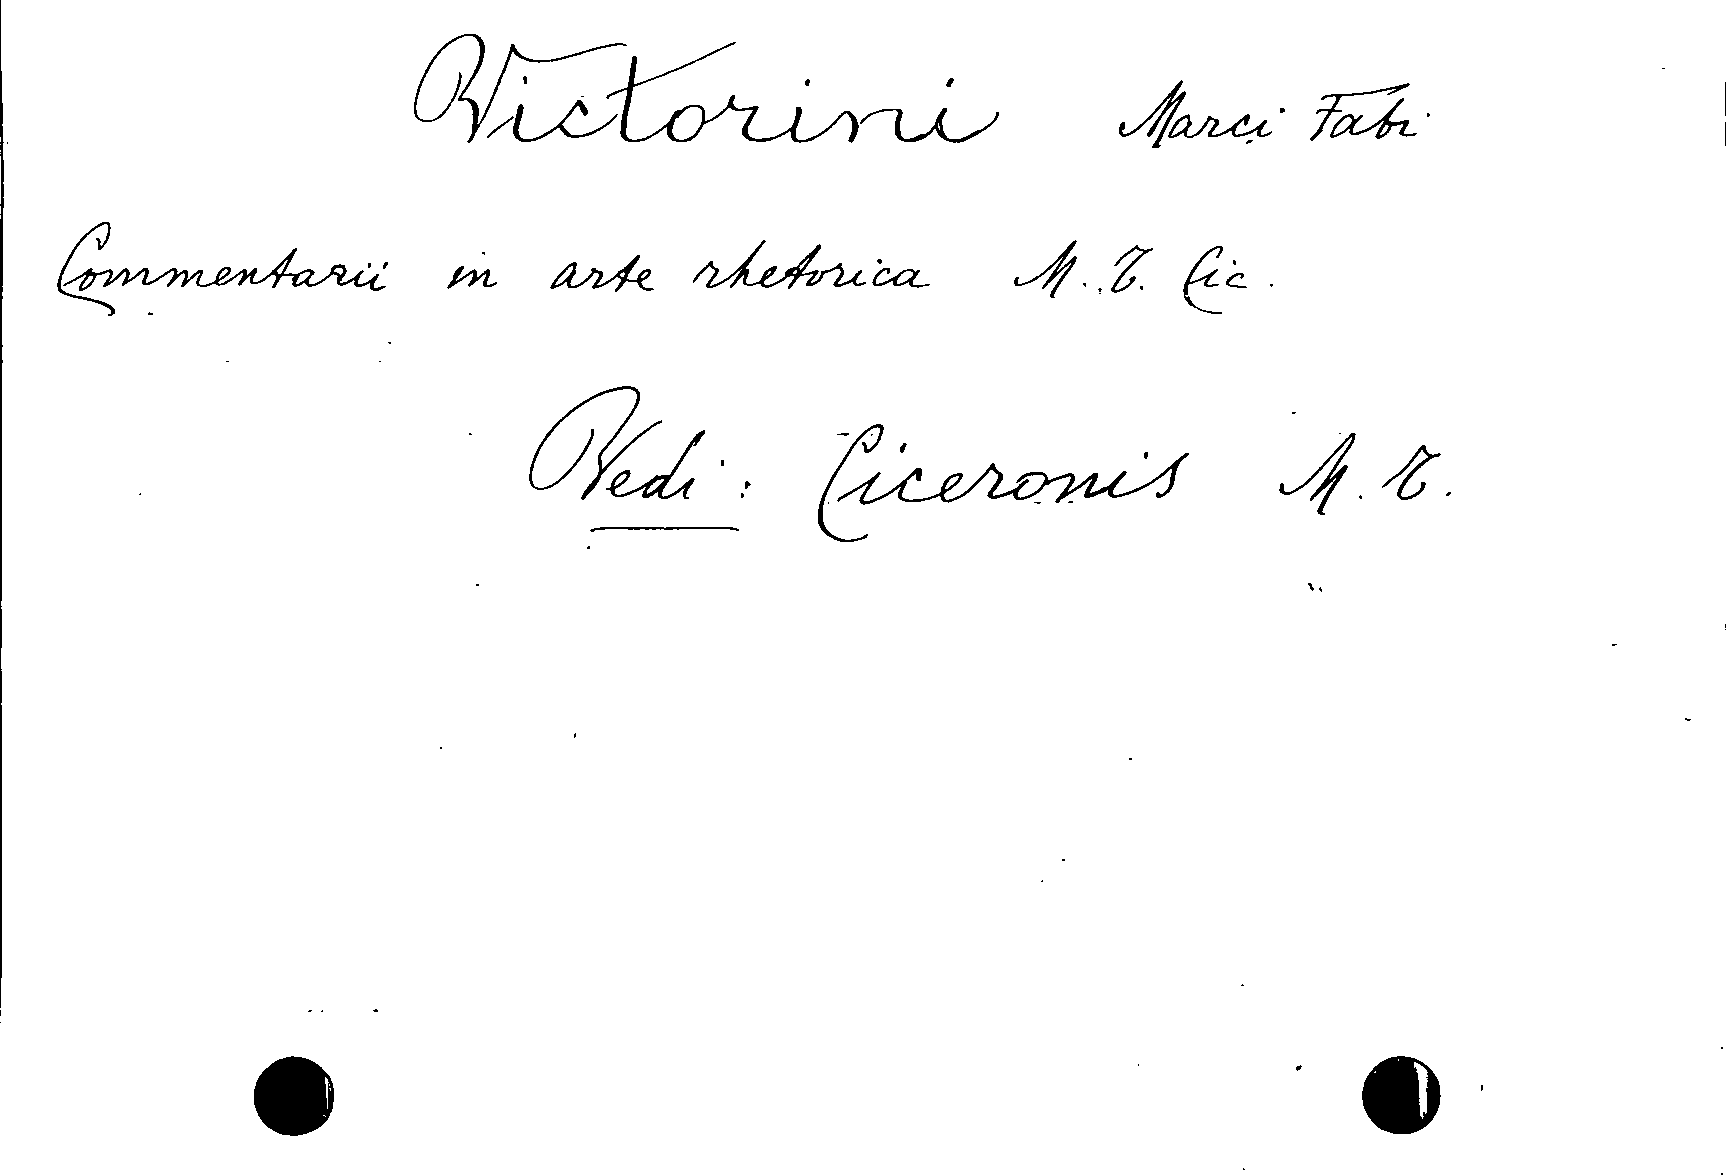 Victorini Marci Fabi
Commentarii in arte rhetorica M. T. Cic.
Vedi: Ciceronis M. T.